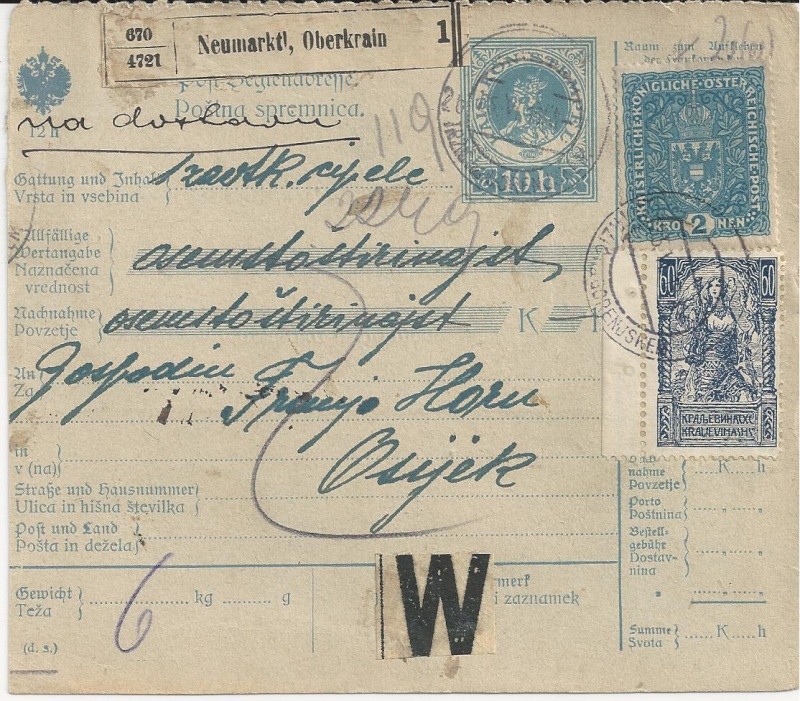 670
4721
Neumarktl, Oberkrain
1
Raum zum Aufkleben
Post-Begleitadresse.
Poštna spremnica.
12 h
na dostavu
119
KAISERLICHE KÖNIGLICHE ÖSTERREICHISCHE POST
KRO 2 NEN
10 h
Gattung und Inhalt
Vrsta in vsebina
cipele
Allfällige
Wertangabe
Naznačena
vrednost
osemstoštirinajst
60 60
Nachnahme
Povzetje
osemstoštirinajst
K h
КРАЉЕВИНА СХС
KRALJEVINA SHS
An
Za
Gospodin Franjo Horn
in
v (na)
Osijek
Nachnahme
Povzetje
K h
Straße und Hausnummer
Ulica in hišna številka
Porto
Poštnina
Post und Land
Pošta in dežela
Bestellgebühr
Dostavnina
Gewicht
Teža
kg g
6
W
merk
i zaznamek
(d. s.)
Summe
Svota
K h